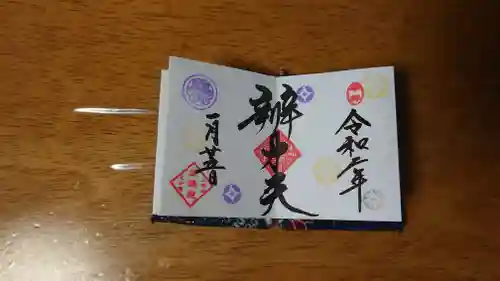 令和二年
辨才天
一月廿五日